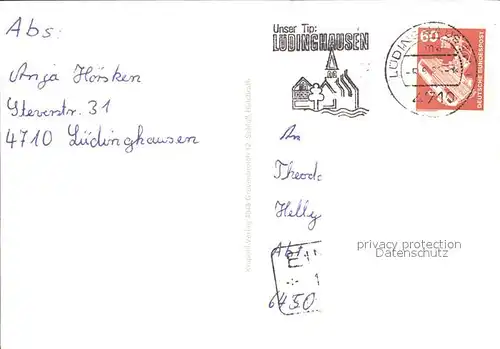 Abs:
Anja Hörsken
Steverstr. 31
4710 Lüdinghausen
Unser Tip:
LÜDINGHAUSEN
4710
60
DEUTSCHE BUNDESPOST
An
Theodo
Helly
Abt.
6450
privacy protection
Datenschutz